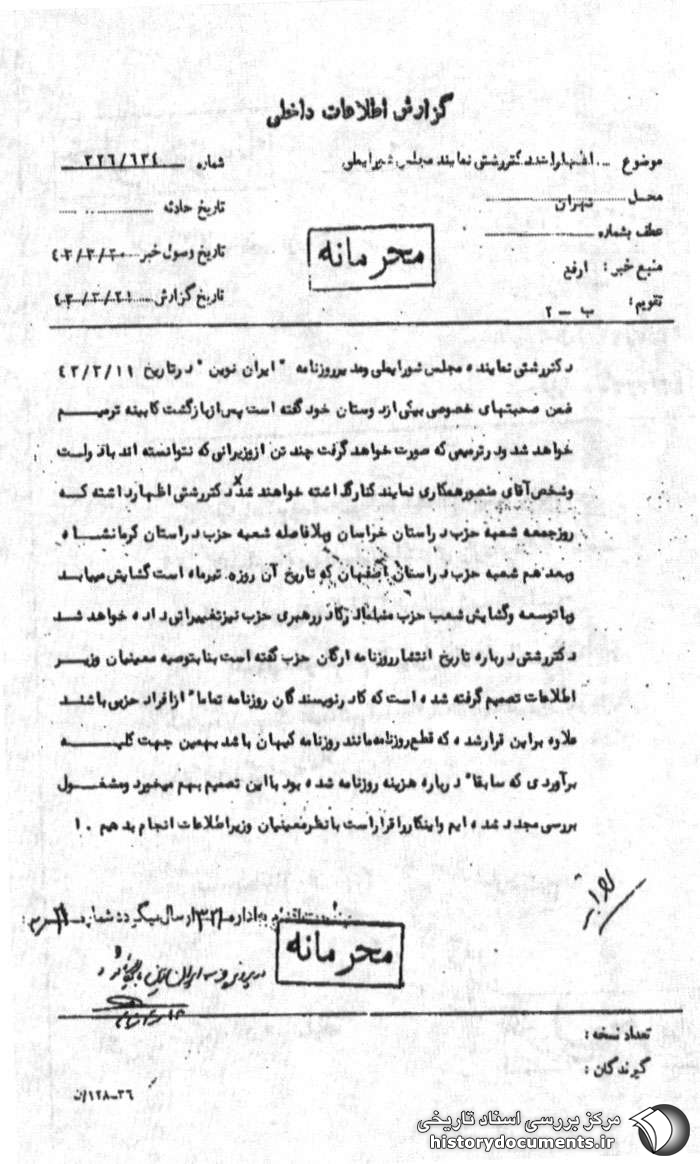 گزارش اطلاعات داخلی
موضوع ... اظهارات دکتررشتی نماینده مجلس شورایملی
شماره ۳۲۶/۶۳۴
محل تهران
تاریخ حادثه
عطف بشماره
تاریخ وصول خبر ۴۳/۳/۲۰
محرمانه
منبع خبر : ارفع
تاریخ گزارش ۴۳/۳/۲۱
تقویم : ب – ۲
دکتررشتی نماینده مجلس شورایملی ومدیرروزنامه "ایران نوین" درتاریخ ۴۳/۳/۱۹
ضمن صحبتهای خصوصی بیکی ازدوستان خود گفته است پس ازبازگشت کابینه ترمیم
خواهد شد ودرترمیمی که صورت خواهد گرفت چند تن ازوزیرانی که نتوانسته اند بادولت
وشخص آقای منصورهمکاری نمایند کنارگذاشته خواهند شد x دکتررشتی اظهارداشته که
روزجمعه شعبه حزب دراستان خراسان وبلافاصله شعبه حزب دراستان کرمانشاه
وبعد هم شعبه حزب دراستان اصفهان که تاریخ آن روزه تیرماه است گشایش میابد
وباتوسعه وگشایش شعب حزب درکادررهبری حزب نیزتغییراتی داده خواهد شد
دکتررشتی درباره تاریخ انتشارروزنامه ارگان حزب گفته است بنابتوصیه معینیان وزیر
اطلاعات تصمیم گرفته شده است که کادرنویسندگان روزنامه تماما" ازافراد حزبی باشند
علاوه براین قرارشده که قطع روزنامه مانند روزنامه کیهان باشد بهمین جهت کلیه
برآوردی که سابقا" درباره هزینه روزنامه شده بود بااین تصمیم بهم میخورد ومشغول
بررسی مجدد شده ایم واینکارراقراراست بانظرمعینیان وزیراطلاعات انجام بدهیم . ا
اداره ۳۲۱ ارسال میگردد شماره
محرمانه
تعداد نسخه :
گیرندگان :
۳۶–۱۲۸/ن
مرکز بررسی اسناد تاریخی
historydocuments.ir